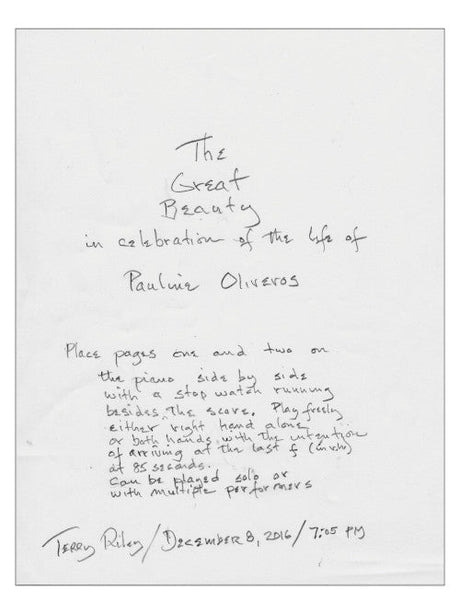 The
Great
Beauty
in celebration of the life of
Pauline Oliveros
Place pages one and two on
the piano side by side
with a stop watch running
besides the score. Play freely
either right hand alone
or both hands with the intention
of arriving at the last f (in r.h)
at 85 seconds.
Can be played solo or
with multiple performers
Terry Riley/December 8, 2016/7:05 PM